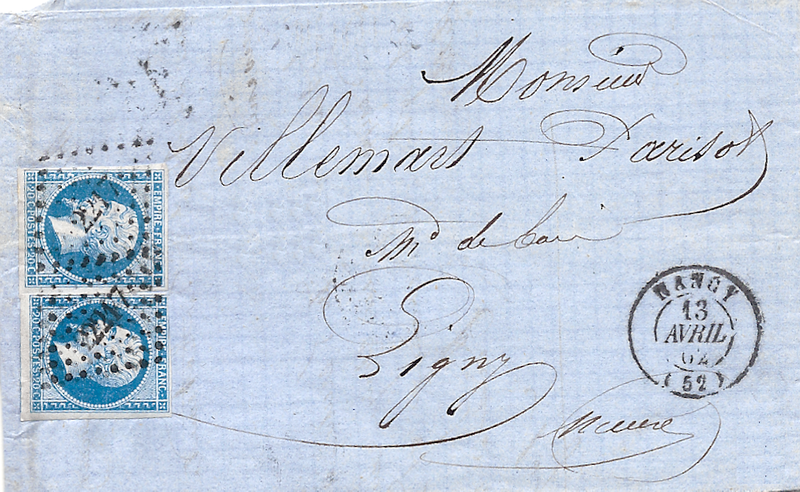 Monsieur
Villemart Parisot
Md de
Ligny
Meuse
NANCY
13
AVRIL
62
(52)
EMPIRE FRANC
20 C POSTES 20 C
2217
EMPIRE FRANC
20 C POSTES 20 C
2217